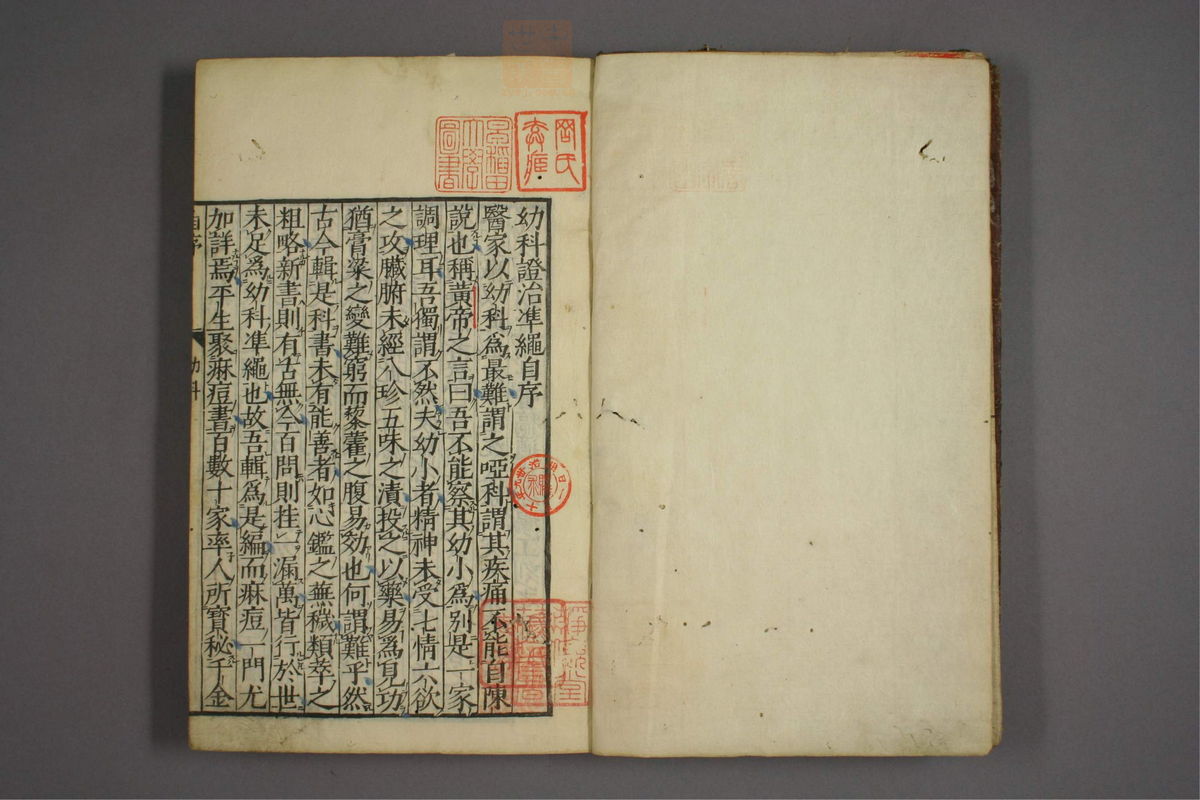 幼科證治準繩自序
醫家以幼科為最難謂之啞科謂其疾痛不能自陳
說也稱黃帝之言曰吾不能察其幼小為别是一家
調理耳吾獨謂不然夫幼小者精神未受七情六欲
之攻臟腑未經八珍五味之漬投之以藥易為見功
猶膏粱之變難窮而藜藿之腹易効也何謂難乎然
古今輯是科書未有能善者如心鑑之蕪穢類萃之
粗略新書則有古無今百問則挂一漏萬皆行於世
未足為幼科準繩也故吾輯為是編而麻痘一門尤
加詳焉平生聚麻痘書百數十家率人所寳秘千金
自序
幼科
早稲田大學圖書